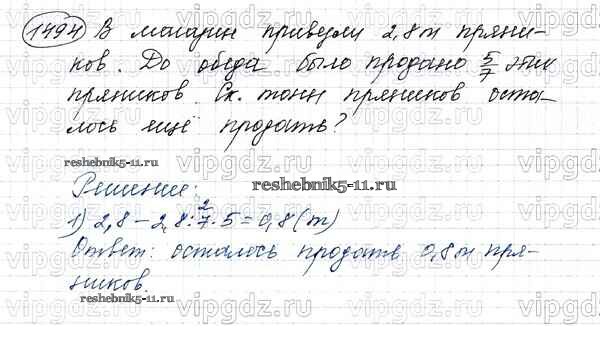 1494 В магазин привезли 2,8 т пряни-
ков. До обеда было продано 5/7 этих
пряников. Ск. тонн пряников оста-
лось ещё продать?
reshebnik5-11.ru
Решение:
reshebnik5-11.ru
1) 2,8 - 2,8 : 7 · 5 = 0,8 (т)
Ответ: осталось продать 0,8 т пря-
ников.
reshebnik5-11.ru
vipgdz.ru